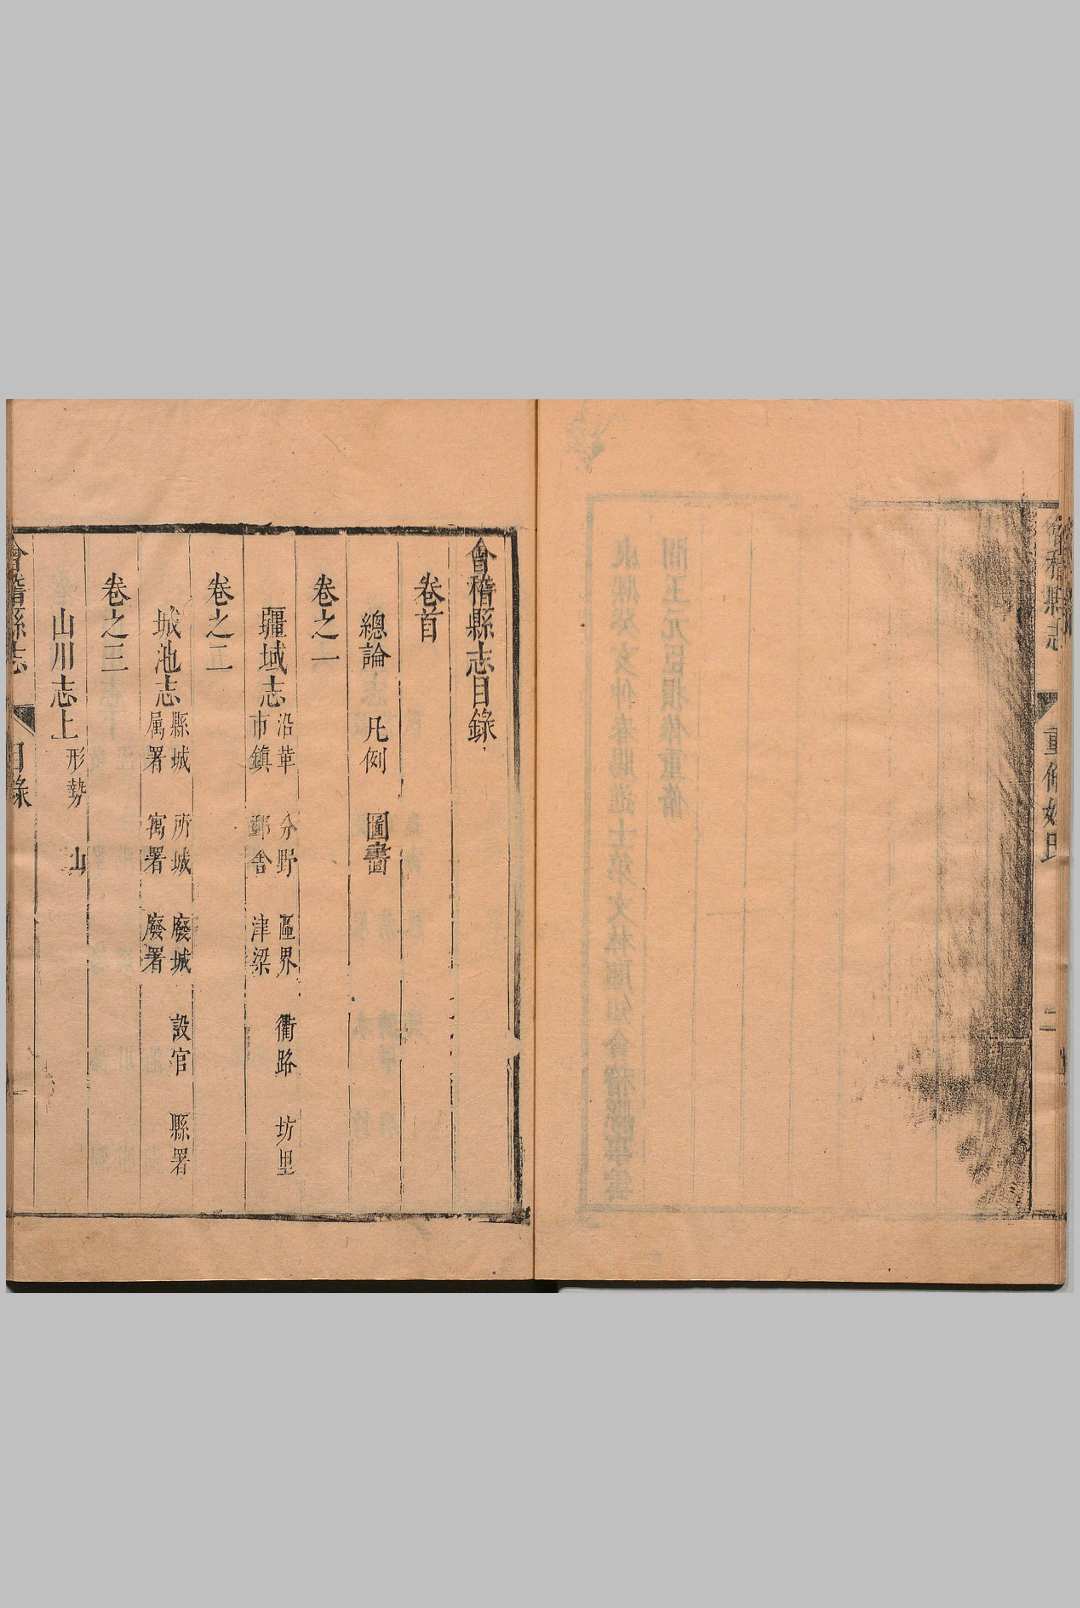 會稽縣志
重修姓氏
二
會稽縣志目錄
卷首
總論 凡例 圖畵
卷之一
疆域志 沿革 分野 區界 衢路 坊里
市鎮 郵舍 津梁
卷之二
城池志 縣城 所城 廢城 設官 縣署
属署 寓署 廢署
卷之三
山川志上 形勢 山
會稽縣志 目錄